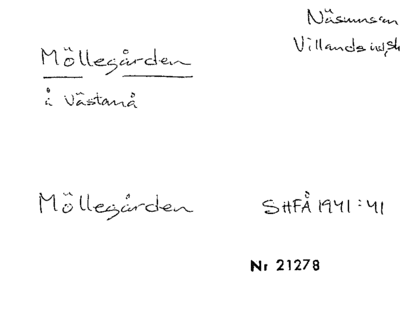 Näsumssn
Villands hd, Sk
Möllegården
å Västanå
Möllegården
SHFÅ 1941:41
Nr 21278